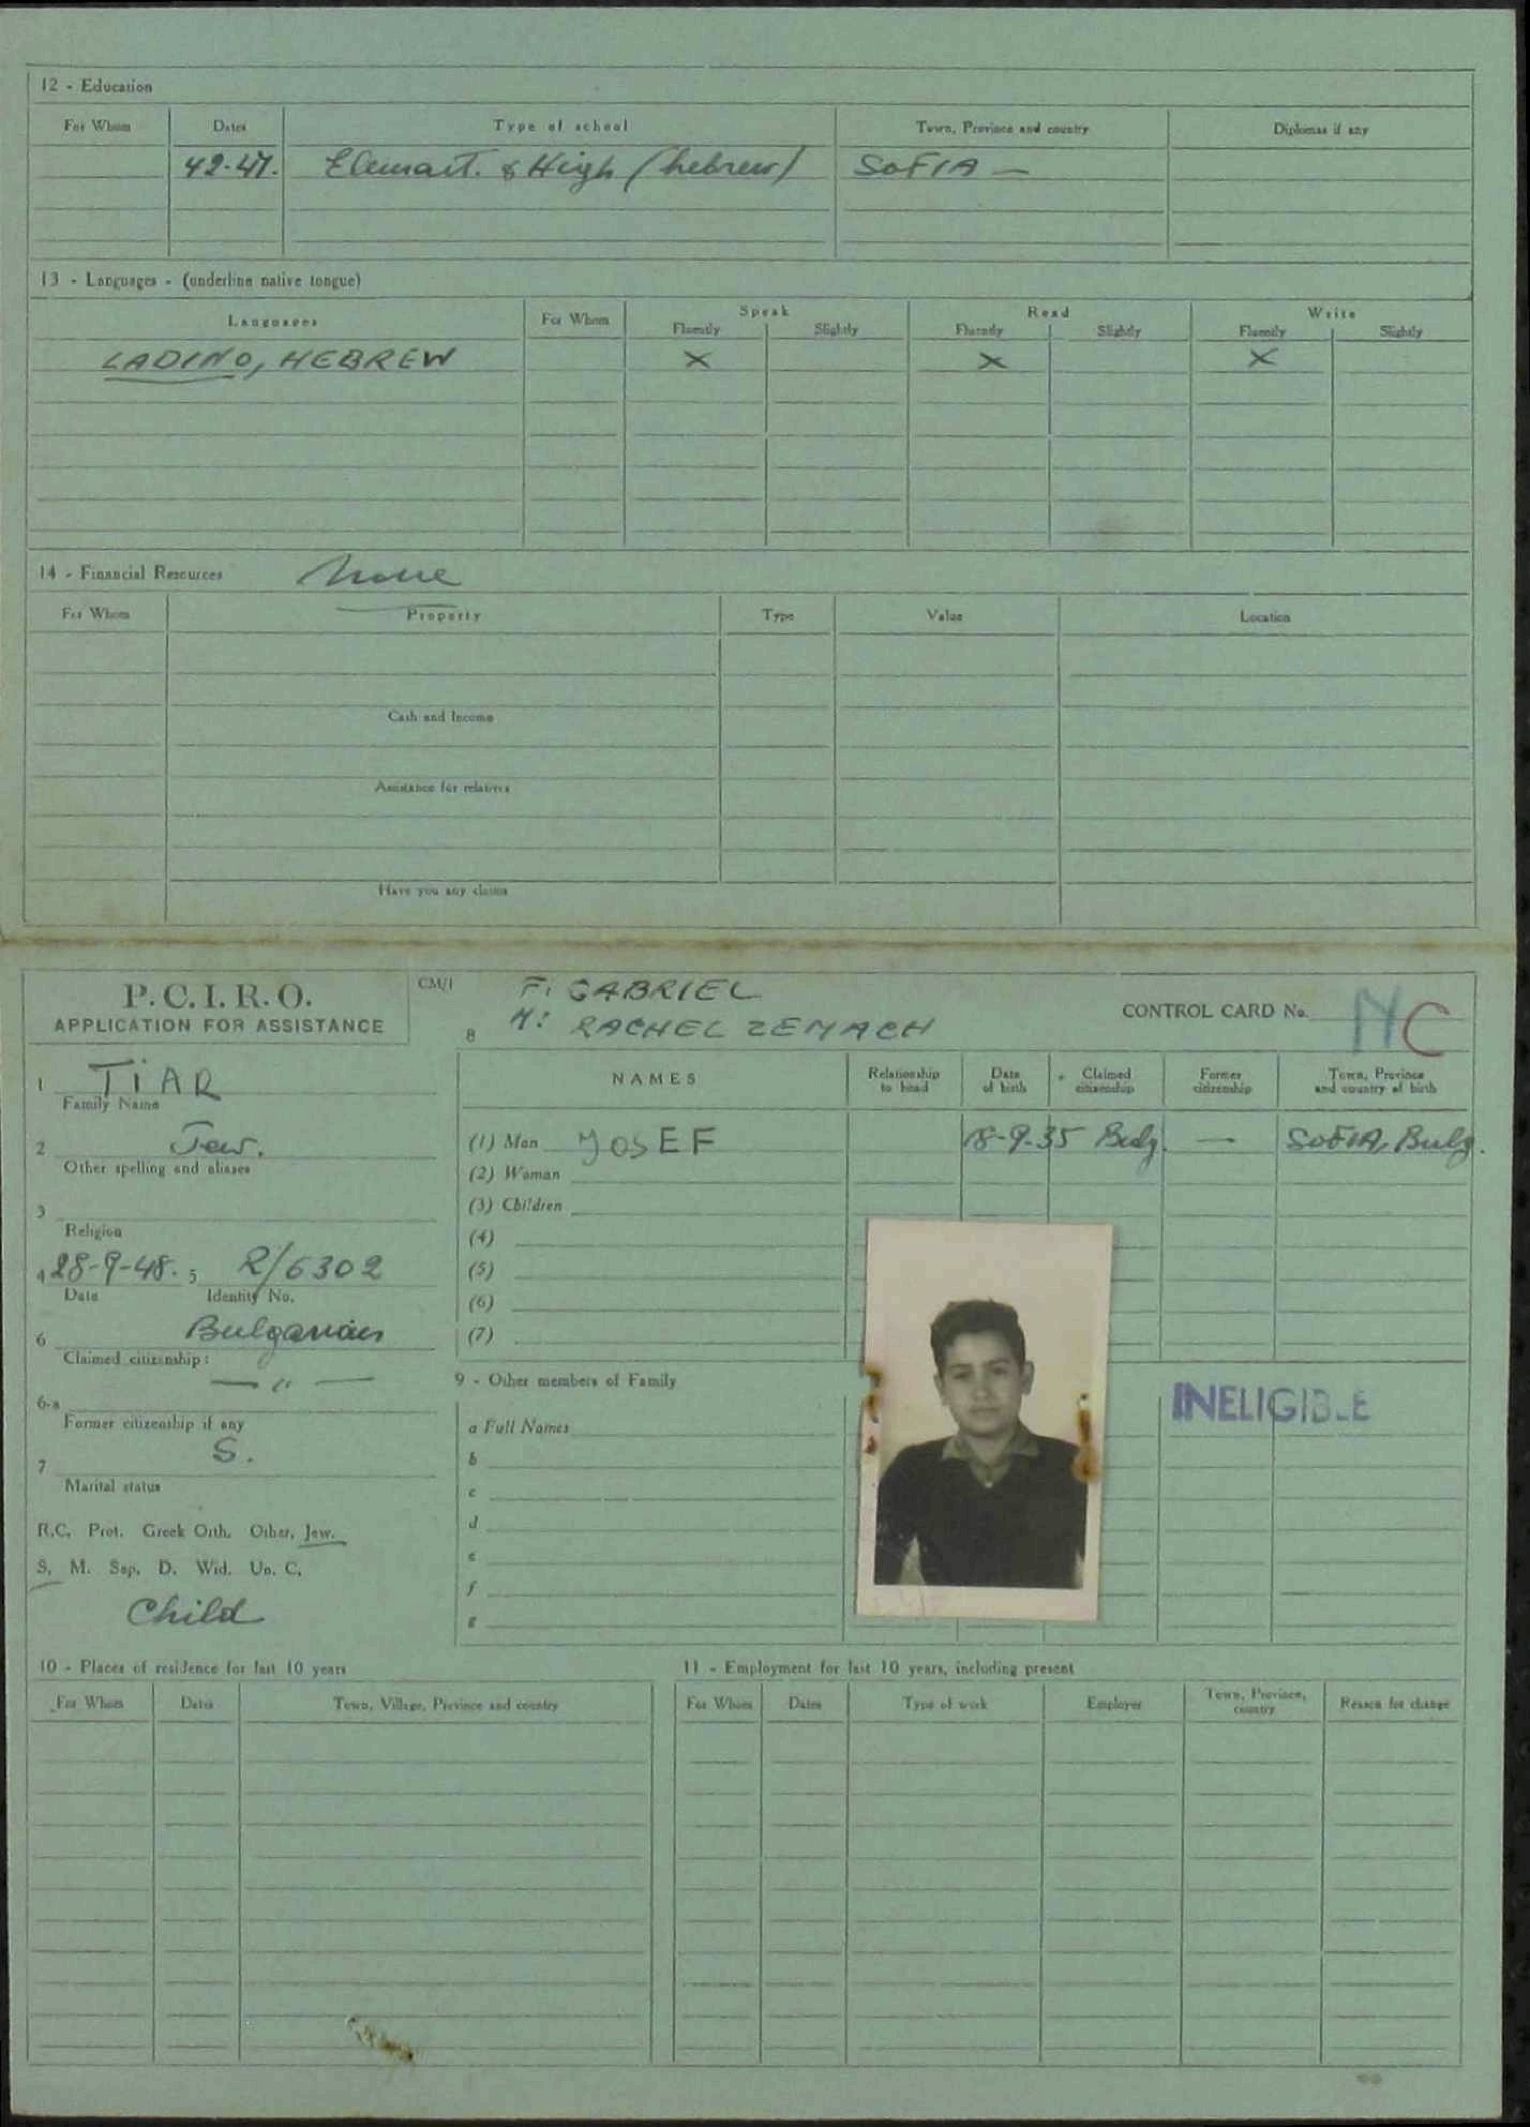 12 - Education
For Whom Dates Type of school Town, Province and country Diplomas if any
42-47. Elemart. & High (hebrew) SOFIA —
13 - Languages - (underline native tongue)
Languages For Whom Speak Read Write
Fluently Slightly Fluently Slightly Fluently Slightly
LADINO, HEBREW X X X
14 - Financial Resources None
For Whom Property Type Value Location
Cash and Income
Assistance for relatives
Have you any claims
P.C.I.R.O.
APPLICATION FOR ASSISTANCE
CM/1
F: GABRIEL
M: RACHEL ZEMACH
CONTROL CARD No. NC
1 TIAR
Family Name
2 Jew.
Other spelling and aliases
3
Religion
4 28-9-48. 5 R/6302
Date Identity No.
6 Bulgarian
Claimed citizenship:
— " —
6-a
Former citizenship if any
S.
7
Marital status
R.C. Prot. Greek Orth. Other, Jew.
S. M. Sep. D. Wid. Un. C.
Child
8
NAMES Relationship to head Date of birth Claimed citizenship Former citizenship Town, Province and country of birth
(1) Man YOSEF 18-9-35 Bulg. — SOFIA, Bulg.
(2) Woman
(3) Children
(4)
(5)
(6)
(7)
9 - Other members of Family
INELIGIBLE
a Full Names
b
c
d
e
f
g
10 - Places of residence for last 10 years
For Whom Dates Town, Village, Province and country
11 - Employment for last 10 years, including present
For Whom Dates Type of work Employer Town, Province, country Reason for change